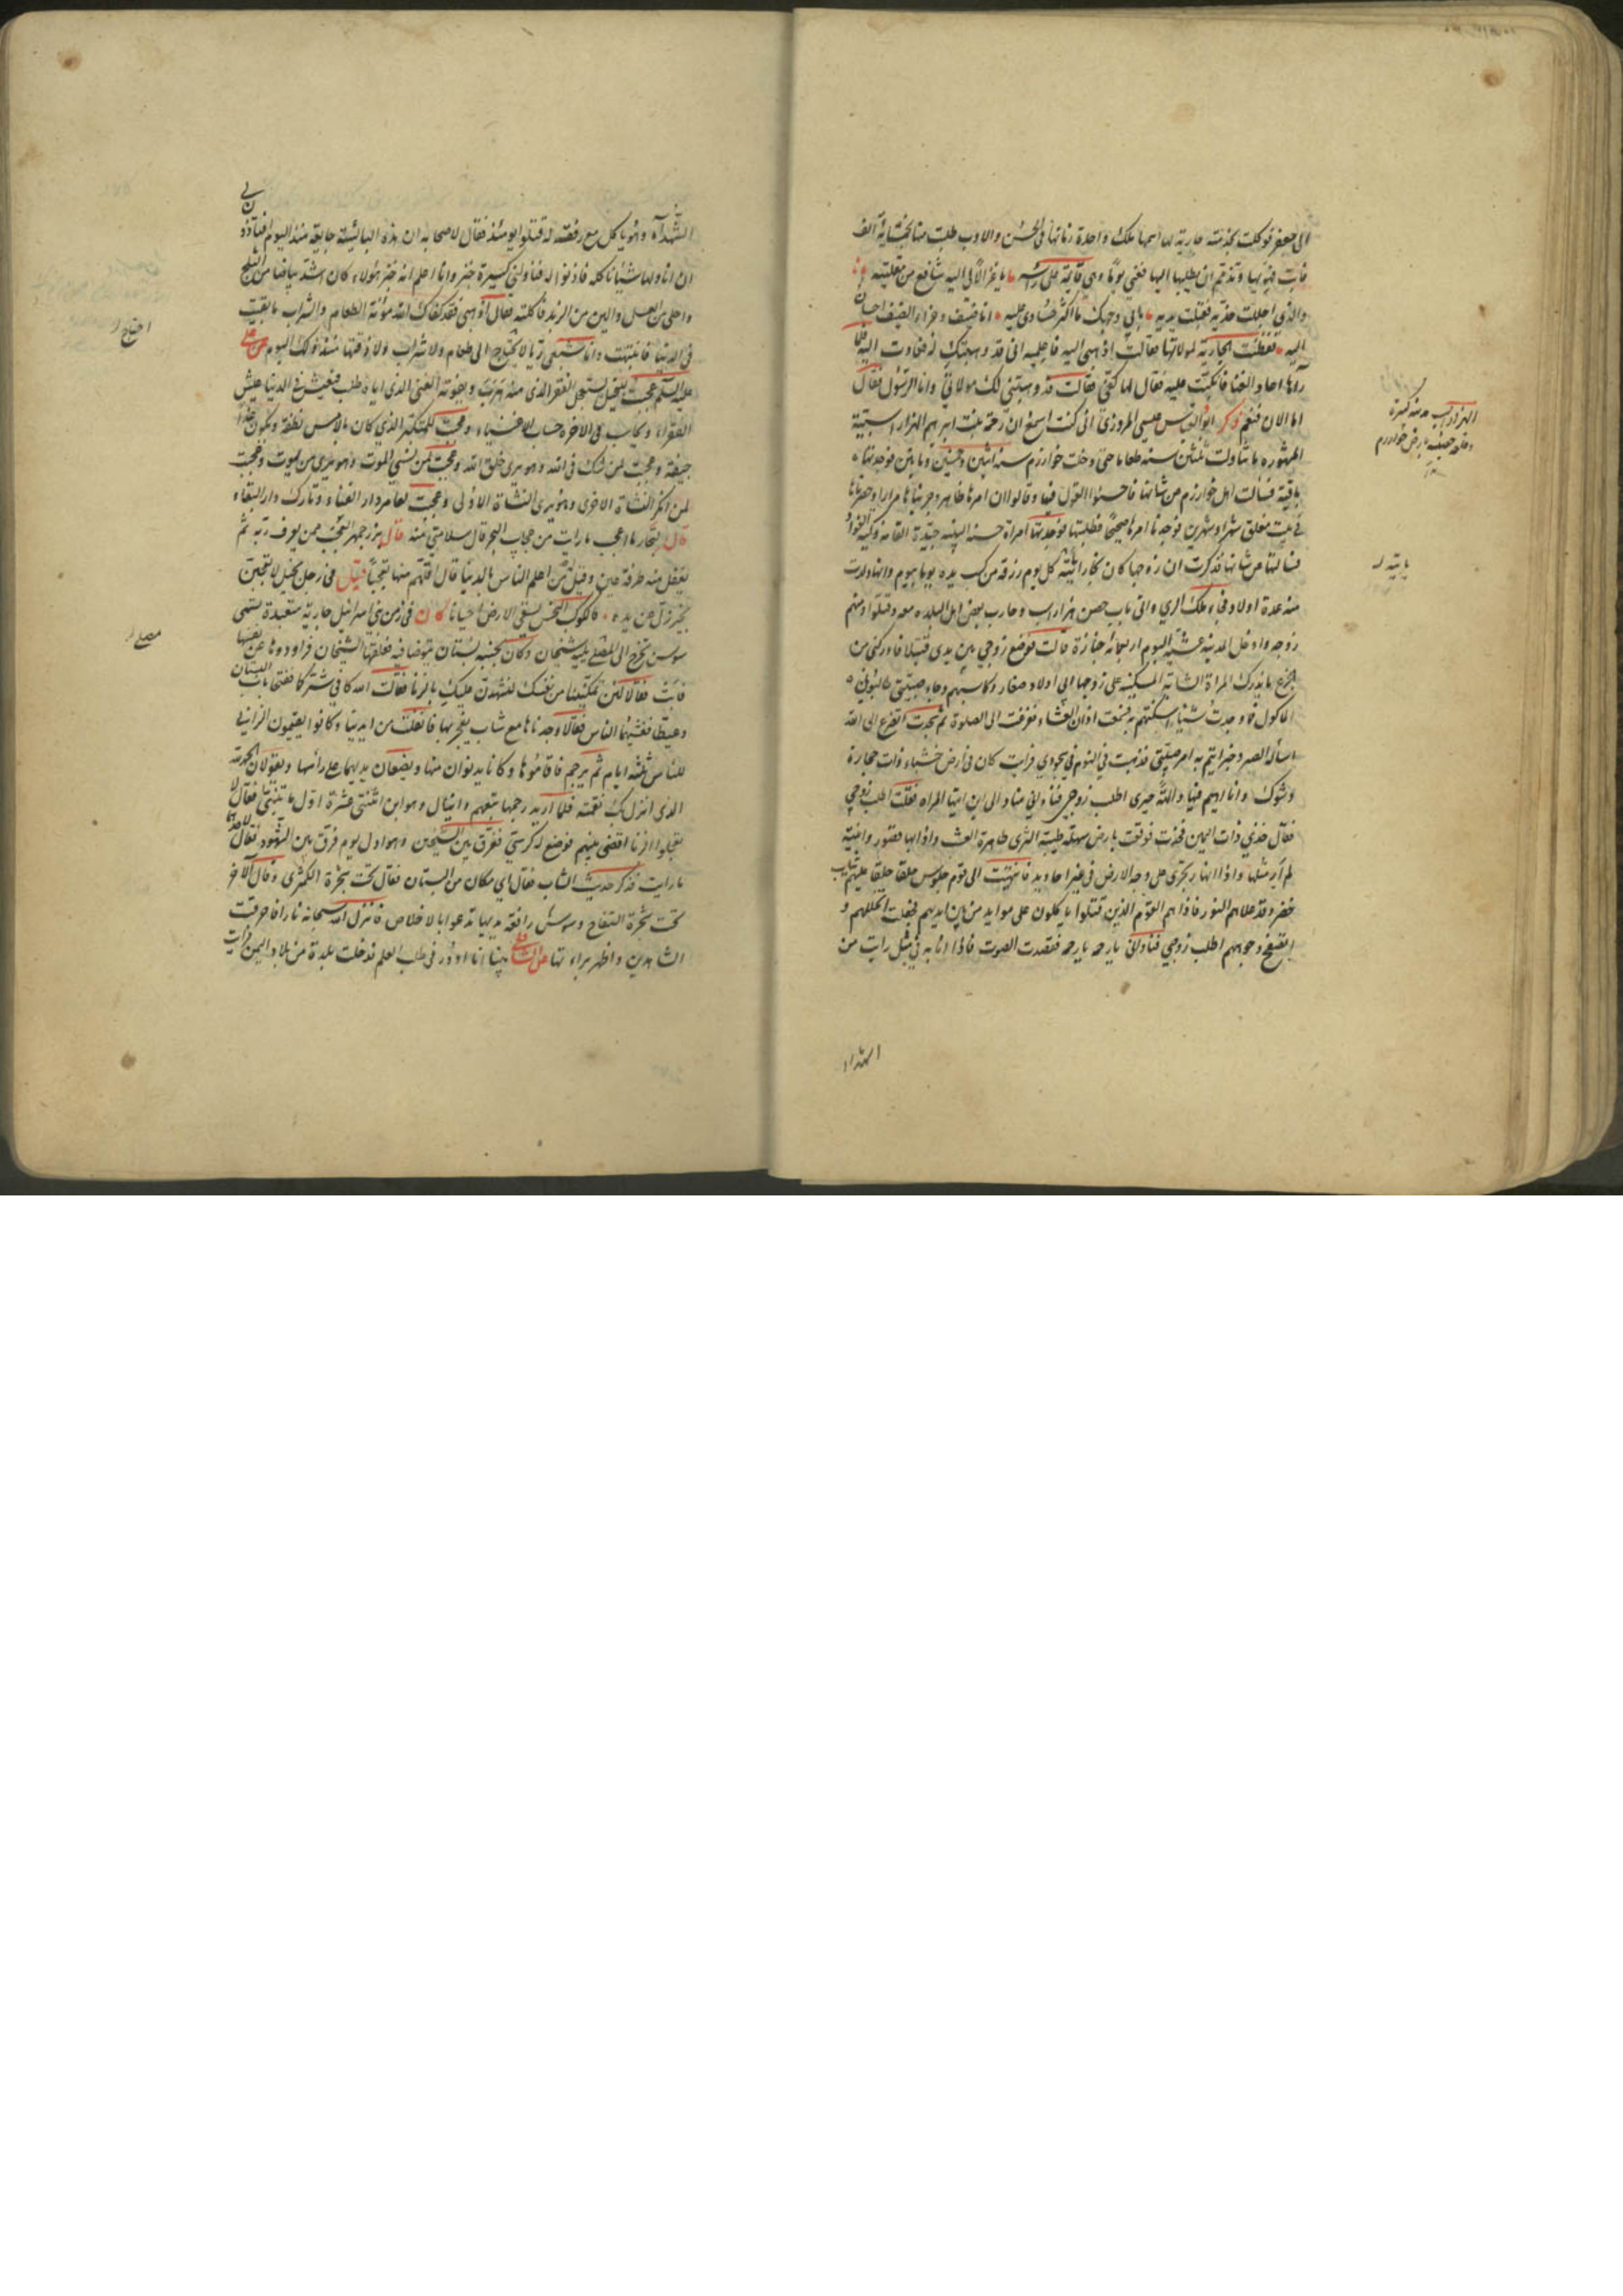 الى جعفر فوكلت بخدمته جارية لها اسمها ملك واحدة زمانها فى الحسن والادب طلب منها بخمسماية الف
فابت فهويها وتذمم ان يطلبها اليها فغنى يوما وهى قائمة على راسه يا غزالا لى اليه شافع من مقلتيه
والذى اجللت خديه فقبلت يديه بابى وجهك ما اكثر حسادى عليه انا ضيف وجزاء الضيف احسان
اليه ففطنت الجارية لمولاتها فقالت اذهبى اليه فاعلميه انى قد وهبتك له فعادت اليه فلما
رآها اعاد الغنا فانكبت عليه فقال لها كفى فقالت قد وهبتنى لك مولاتى وانا الرسول فقال
اما الان فنعم ذكر ابو العباس عيسى المروزى انى كنت اسمع ان رحمة بنت ابرهيم الهزاراسبية
المشهورة ما تناولت ثلثين سنه طعاما حتى دخلت خوارزم سنه اثنين وخمسين ومايتين فوجدتها
باقية فسالت اهل خوارزم من شانها فاحسنوا القول فيها وقالوا ان امرها ظاهر وجربناها مرارا وحصرناها
فى بيت مغلق شهرا وشهرين فوجدنا امرها صحيحا فطلبتها فوجدتها امراة حسنه البنية جيدة القامة ذكية الفواد
فسالتها من شانها فذكرت ان زوجها كان نجارا ياتيه كل يوم رزقه من كسب يده يوما بيوم وانها ولدت
منه عدة اولاد فجاء ملك الرى واتى باب حصن هزاراسب وحارب بعض اهل البلده معه وقتلوا منهم
زوجها وادخل المدينه عشية اليوم اربعمائه جنازة قالت فوضع زوجى بين يدى قتيلا فادركنى من
الجزع ما يدرك المراة الشابة المسكينة على زوجها ابى اولاد صغار وكاسبهم وجاء صبيتى يطالبونى
الماكول فما وجدت شيئا اسكتهم به فسمعت اذان العشاء ففزعت الى الصلوة ثم سجدت اتضرع الى الله
اساله الصبر وجبر ايتم به امر صبيتى فذهبت فى النوم فى سجودى فرايت كان فى ارض خشناء ذات حجارة
وشوك وانا اهيم فيها والهة حيرى اطلب زوجى فنادانى مناد الى اين ايتها المراه فقلت اطلب زوجى
فقال خذى ذات اليمين فاخذت فوقعت بارض سهلة طيبة الثرى ظاهرة العشب واذا بها قصور وابنية
لم ار مثلها واذا انهار تجرى على وجه الارض فى غير اخاديد فانتهيت الى قوم جلوس حلقا حلقا عليهم ثياب
خضر وقد علاهم النور فاذا هم القوم الذين قتلوا ياكلون على موايد من بين ايديهم فجعلت اتخللهم و
اتصفح وجوههم اطلب زوجى فنادانى يا رحمه يا رحمه فقصدت الصوت فاذا انا به فى مثل رايت من
الهزاراسب مدينه كبيرة
وقلعه حصينه بارض خوارزم
الشهداء
الشهداء وهو ياكل مع رفقته له قتلوا يومئذ فقال لاصحابه ان هذه البائسة جايعة منذ اليوم افتاذنون لى
ان اناولها شيئا ناكله فاذنوا له فناولنى كسيرة خبز وانا اعلم انه خبز هو وكان اشد بياضا من الثلج
واحلى من العسل والين من الزبد فاكلته فقال اذهبى فقد كفاك الله مؤنة الطعام والشراب ما بقيت
فى الدنيا فانتبهت وانا شبعى ريا لا يحتاج الى طعام ولا شراب ولا ذقتها منذ ذلك اليوم عن على
عليه السلم عجبت للبخيل يستعجل الفقر الذى منه هرب ويفوته الغنى الذى اياه طلب فيعيش فى الدنيا عيش
الفقراء ويحاسب فى الاخرة حساب الاغنياء وعجبت للمتكبر الذى كان بالامس نطفة ويكون غدا
جيفة وعجبت لمن شك فى الله وهو يرى خلق الله وعجبت لمن نسى الموت وهو يرى من يموت وعجبت
لمن انكر النشاة الاخرى وهو يرى النشاة الاولى وعجبت لعامر دار الفناء وتارك دار البقاء
قال بحار ما اعجب ما رايت من عجايب البحر قال سلامتى منه قال بزرجمهر العجب ممن يعرف ربه ثم
يغفل عنه طرفة عين وقيل من اعلم الناس بالدنيا قال اقلهم منها تعجبا قيل فى رجل بخيل لا تعجبن
بخير زل من يده فالكوكب النحس يسقى الارض احيانا كان فى زمن بنى اسرائيل جارية متعبدة تسمى
سوسن تخرج الى المصلى يليه شيخان وكان بجنبه بستان تتوضا فيه فعلقها الشيخان فراوداها عن نفسها
فابت فقالا لئن تمكنينا من نفسك لنشهدن عليك بالزنا فقالت الله كافى شركما ففتحا باب البستان
وعيطا فغشيهما الناس فقالا وجدناها مع شاب يفجر بها فانفلت من ايدينا وكانوا يقيمون الزانى
للناس ثلثة ايام ثم يرجم فاقاموها وكانا يدنوان منها ويضعان يديهما على راسها ويقولان الحمد لله
الذى انزل بك نقمته فلما اريد رجمها تبعهم دانيال وهو ابن اثنتى عشرة اول ما تنبئ فقال لا
تعجلوا انا اقضى بينهم فوضع له كرسى ففرق بين الشيخين وهو اول يوم فرق بين الشهود فقال لاحدهما
ما رايت فذكر حديث الشاب فقال اى مكان من البستان فقال تحت شجرة الكمثرى وقال الاخر
تحت شجرة التفاح وسوسن رافعة يديها تدعو بالاخلاص فانزل الله سبحانه نارا فاحرقت
الشاهدين واظهر براءتها عن الشافعى بينا انا ادور فى طلب العلم فدخلت بلدة من بلاد اليمن فرايت